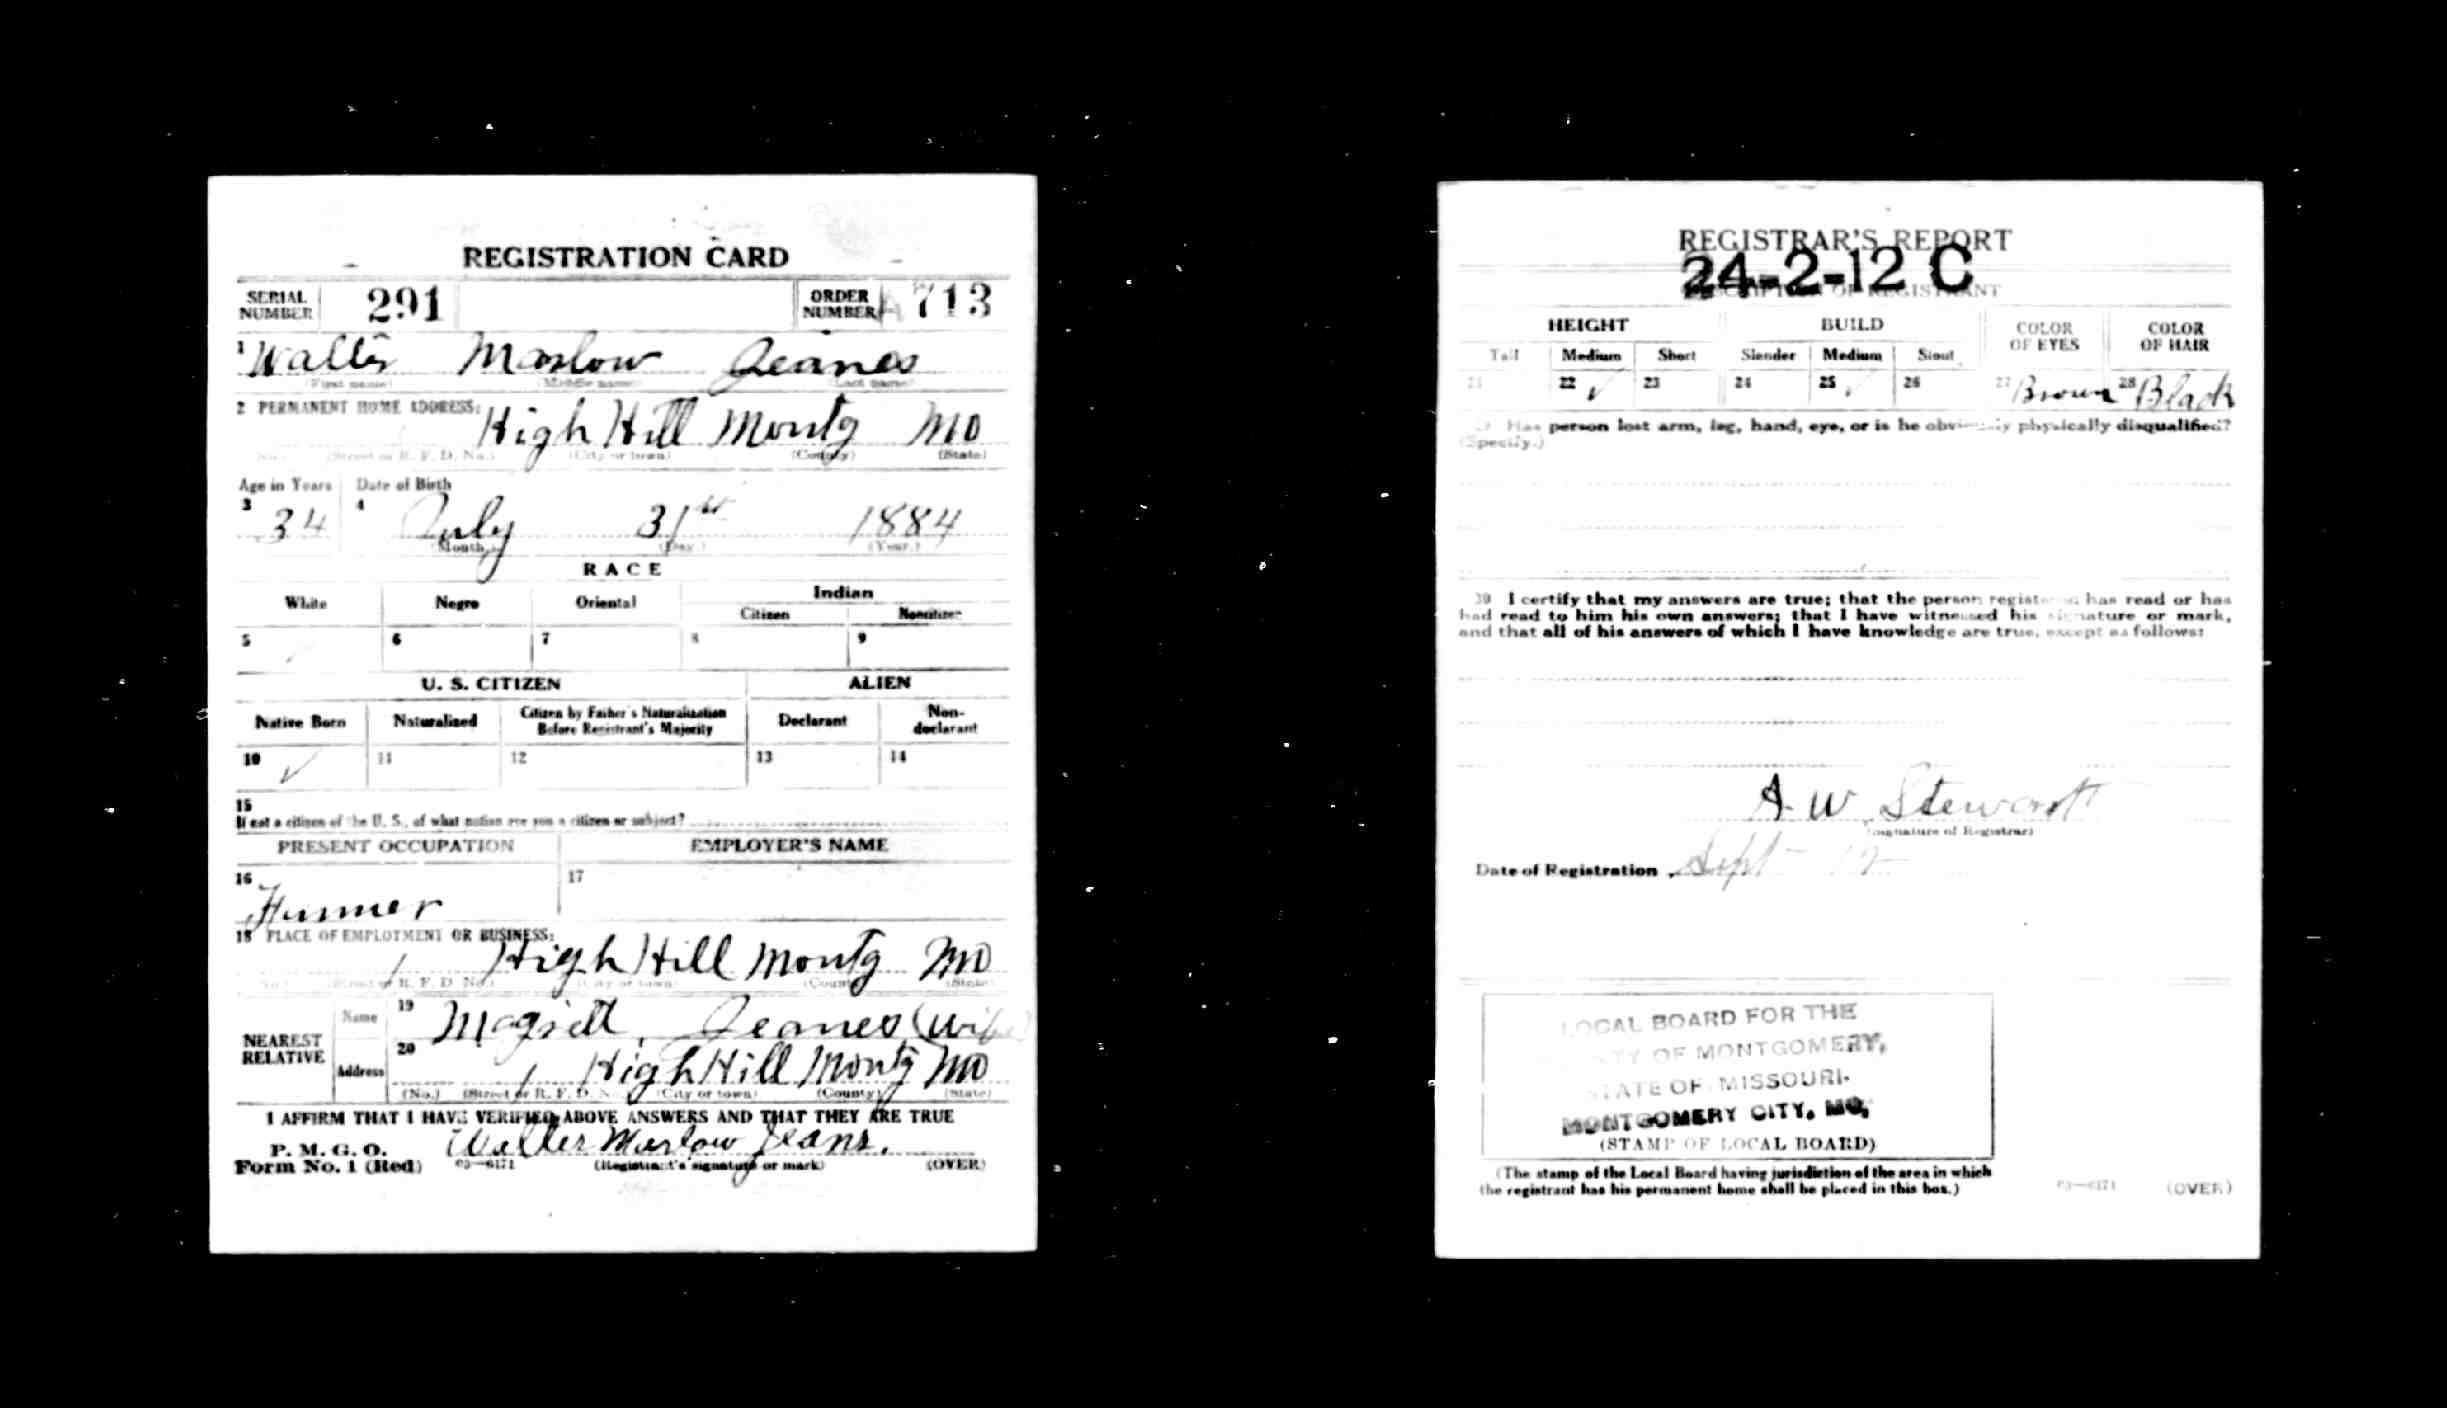 REGISTRATION CARD
SERIAL NUMBER 291 ORDER NUMBER A 713
1 Walter Marlow Jeanes
(First name) (Middle name) (Last name)
2 PERMANENT HOME ADDRESS:
High Hill Montg MO
(No.) (Street or R. F. D. No.) (City or town) (County) (State)
Age in Years Date of Birth
3 34 4 July 31st 1884
(Month.) (Day.) (Year.)
RACE
White Negro Oriental Indian
Citizen Noncitizen
5 ✓ 6 7 8 9
U. S. CITIZEN ALIEN
Native Born Naturalized Citizen by Father's Naturalization Before Registrant's Majority Declarant Non-declarant
10 ✓ 11 12 13 14
15
If not a citizen of the U. S., of what nation are you a citizen or subject?
PRESENT OCCUPATION EMPLOYER'S NAME
16 17
Farmer
18 PLACE OF EMPLOYMENT OR BUSINESS:
High Hill Montg MO
(No.) (Street or R. F. D. No.) (City or town) (County) (State)
NEAREST RELATIVE
Name 19 Jeanes (wife)
Address 20 High Hill Montg MO
(No.) (Street or R. F. D. No.) (City or town) (County) (State)
I AFFIRM THAT I HAVE VERIFIED ABOVE ANSWERS AND THAT THEY ARE TRUE
P. M. G. O.
Form No. 1 (Red) 03—6171 Walter Marlow Jeans.
(Registrant's signature or mark) (OVER)
REGISTRAR'S REPORT
24-2-12 C
DESCRIPTION OF REGISTRANT
HEIGHT BUILD COLOR OF EYES COLOR OF HAIR
Tall Medium Short Slender Medium Stout
21 22 ✓ 23 24 25 ✓ 26 27 Brown 28 Black
29 Has person lost arm, leg, hand, eye, or is he obviously physically disqualified?
(Specify.)
30 I certify that my answers are true; that the person registered has read or has
had read to him his own answers; that I have witnessed his signature or mark,
and that all of his answers of which I have knowledge are true, except as follows:
A. W. Stewart
(Signature of Registrar)
Date of Registration Sept 12
LOCAL BOARD FOR THE
COUNTY OF MONTGOMERY,
STATE OF MISSOURI-
MONTGOMERY CITY, MO,
(STAMP OF LOCAL BOARD)
(The stamp of the Local Board having jurisdiction of the area in which
the registrant has his permanent home shall be placed in this box.)
03—6171 (OVER)